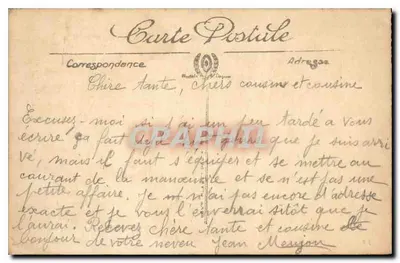 Carte Postale
Correspondance Adresse
Chère tante, chers cousins et cousine
Excusez-moi si j'ai un peu tardé a vous
ecrire ça fait deux jours que je suis arri
vé, mais il faut s'équiper et se mettre au
courant de la manœuvre et se n'est pas une
petite affaire. Je n'ai pas encore d'adresse
exacte et je vous l'enverrai sitôt que je
l'aurai. Recevez chère tante et cousine le
bonjour de votre neveu Jean
CPAPHIL